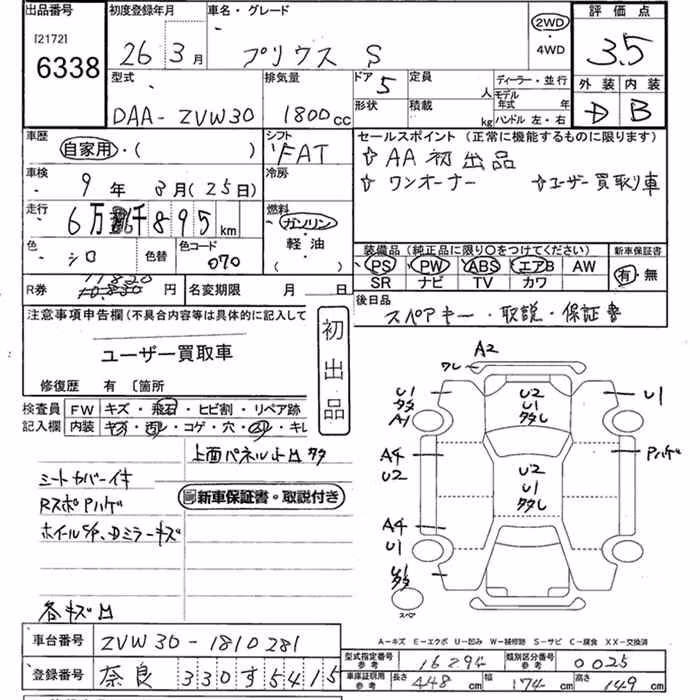 出品番号 初度登録年月 車名・グレード 評価点
[2172] 26年3月 プリウス S 2WD・4WD 3.5
6338
型式 排気量 ドア 5 定員 人 ディーラー・並行 外装 内装
DAA-ZVW30 1800cc 形状 積載 kg モデル年式 年 D B
ハンドル 左・右
車歴 シフト セールスポイント (正常に機能するものに限ります)
自家用・( ) FAT ☆AA初出品
車検 9年3月(25日) 冷房 ☆ワンオーナー ☆ユーザー買取り車
走行 6万 6千895km 燃料 ガソリン・軽油
色 シロ 色替 色コード 070 ( )
装備品 (純正品に限り○をつけてください) 新車保証書
PS PW ABS エアB AW 有・無
SR ナビ TV カワ
R券 11820 10830 円 名変期限 月 日
後日品 スペアキー・取説・保証書
注意事項申告欄(不具合内容等は具体的に記入して
ユーザー買取車
初出品
修復歴 有 〔箇所
検査員記入欄 FW キズ・飛石・ヒビ割・リペア跡
内装 キズ・汚れ・コゲ・穴・
上面パネル小凹タタ
シートカバー付
Rスポ Pハゲ
新車保証書・取説付き
各キズ凹
A2
ワレ
U1 タタ A1
U2 U1 タタし
U1
A4 U2
Pハゲ
U2 U1 タタし
A4 U1
スペア
A-キズ E-エクボ U-凹み W-補修跡 S-サビ C-腐食 XX-交換済
車台番号 ZVW30-1810281
型式指定番号 参考 16894 類別区分番号 参考 0025
登録番号 奈良 330 す 5415
車庫証明用 参考 長さ 448cm 幅 174cm 高さ 149cm